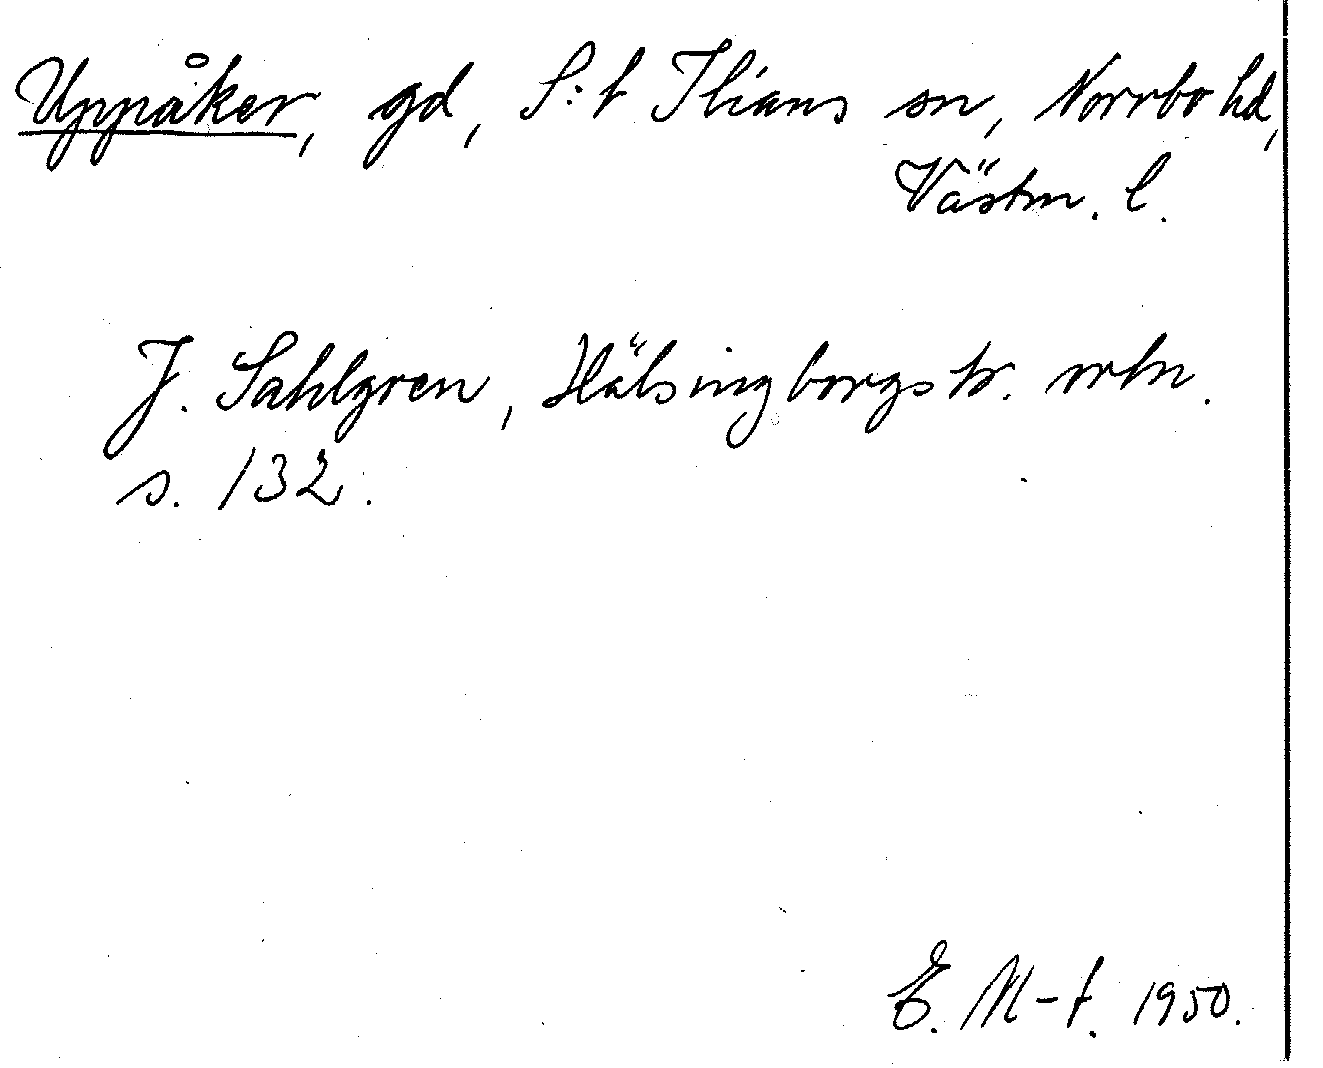 Uppåker, gd, S:t Ilians sn, Norrbo hd,
Västm. l.
J. Sahlgren, Hälsingborgstr. ortn.
s. 132.
E. M-t. 1950.